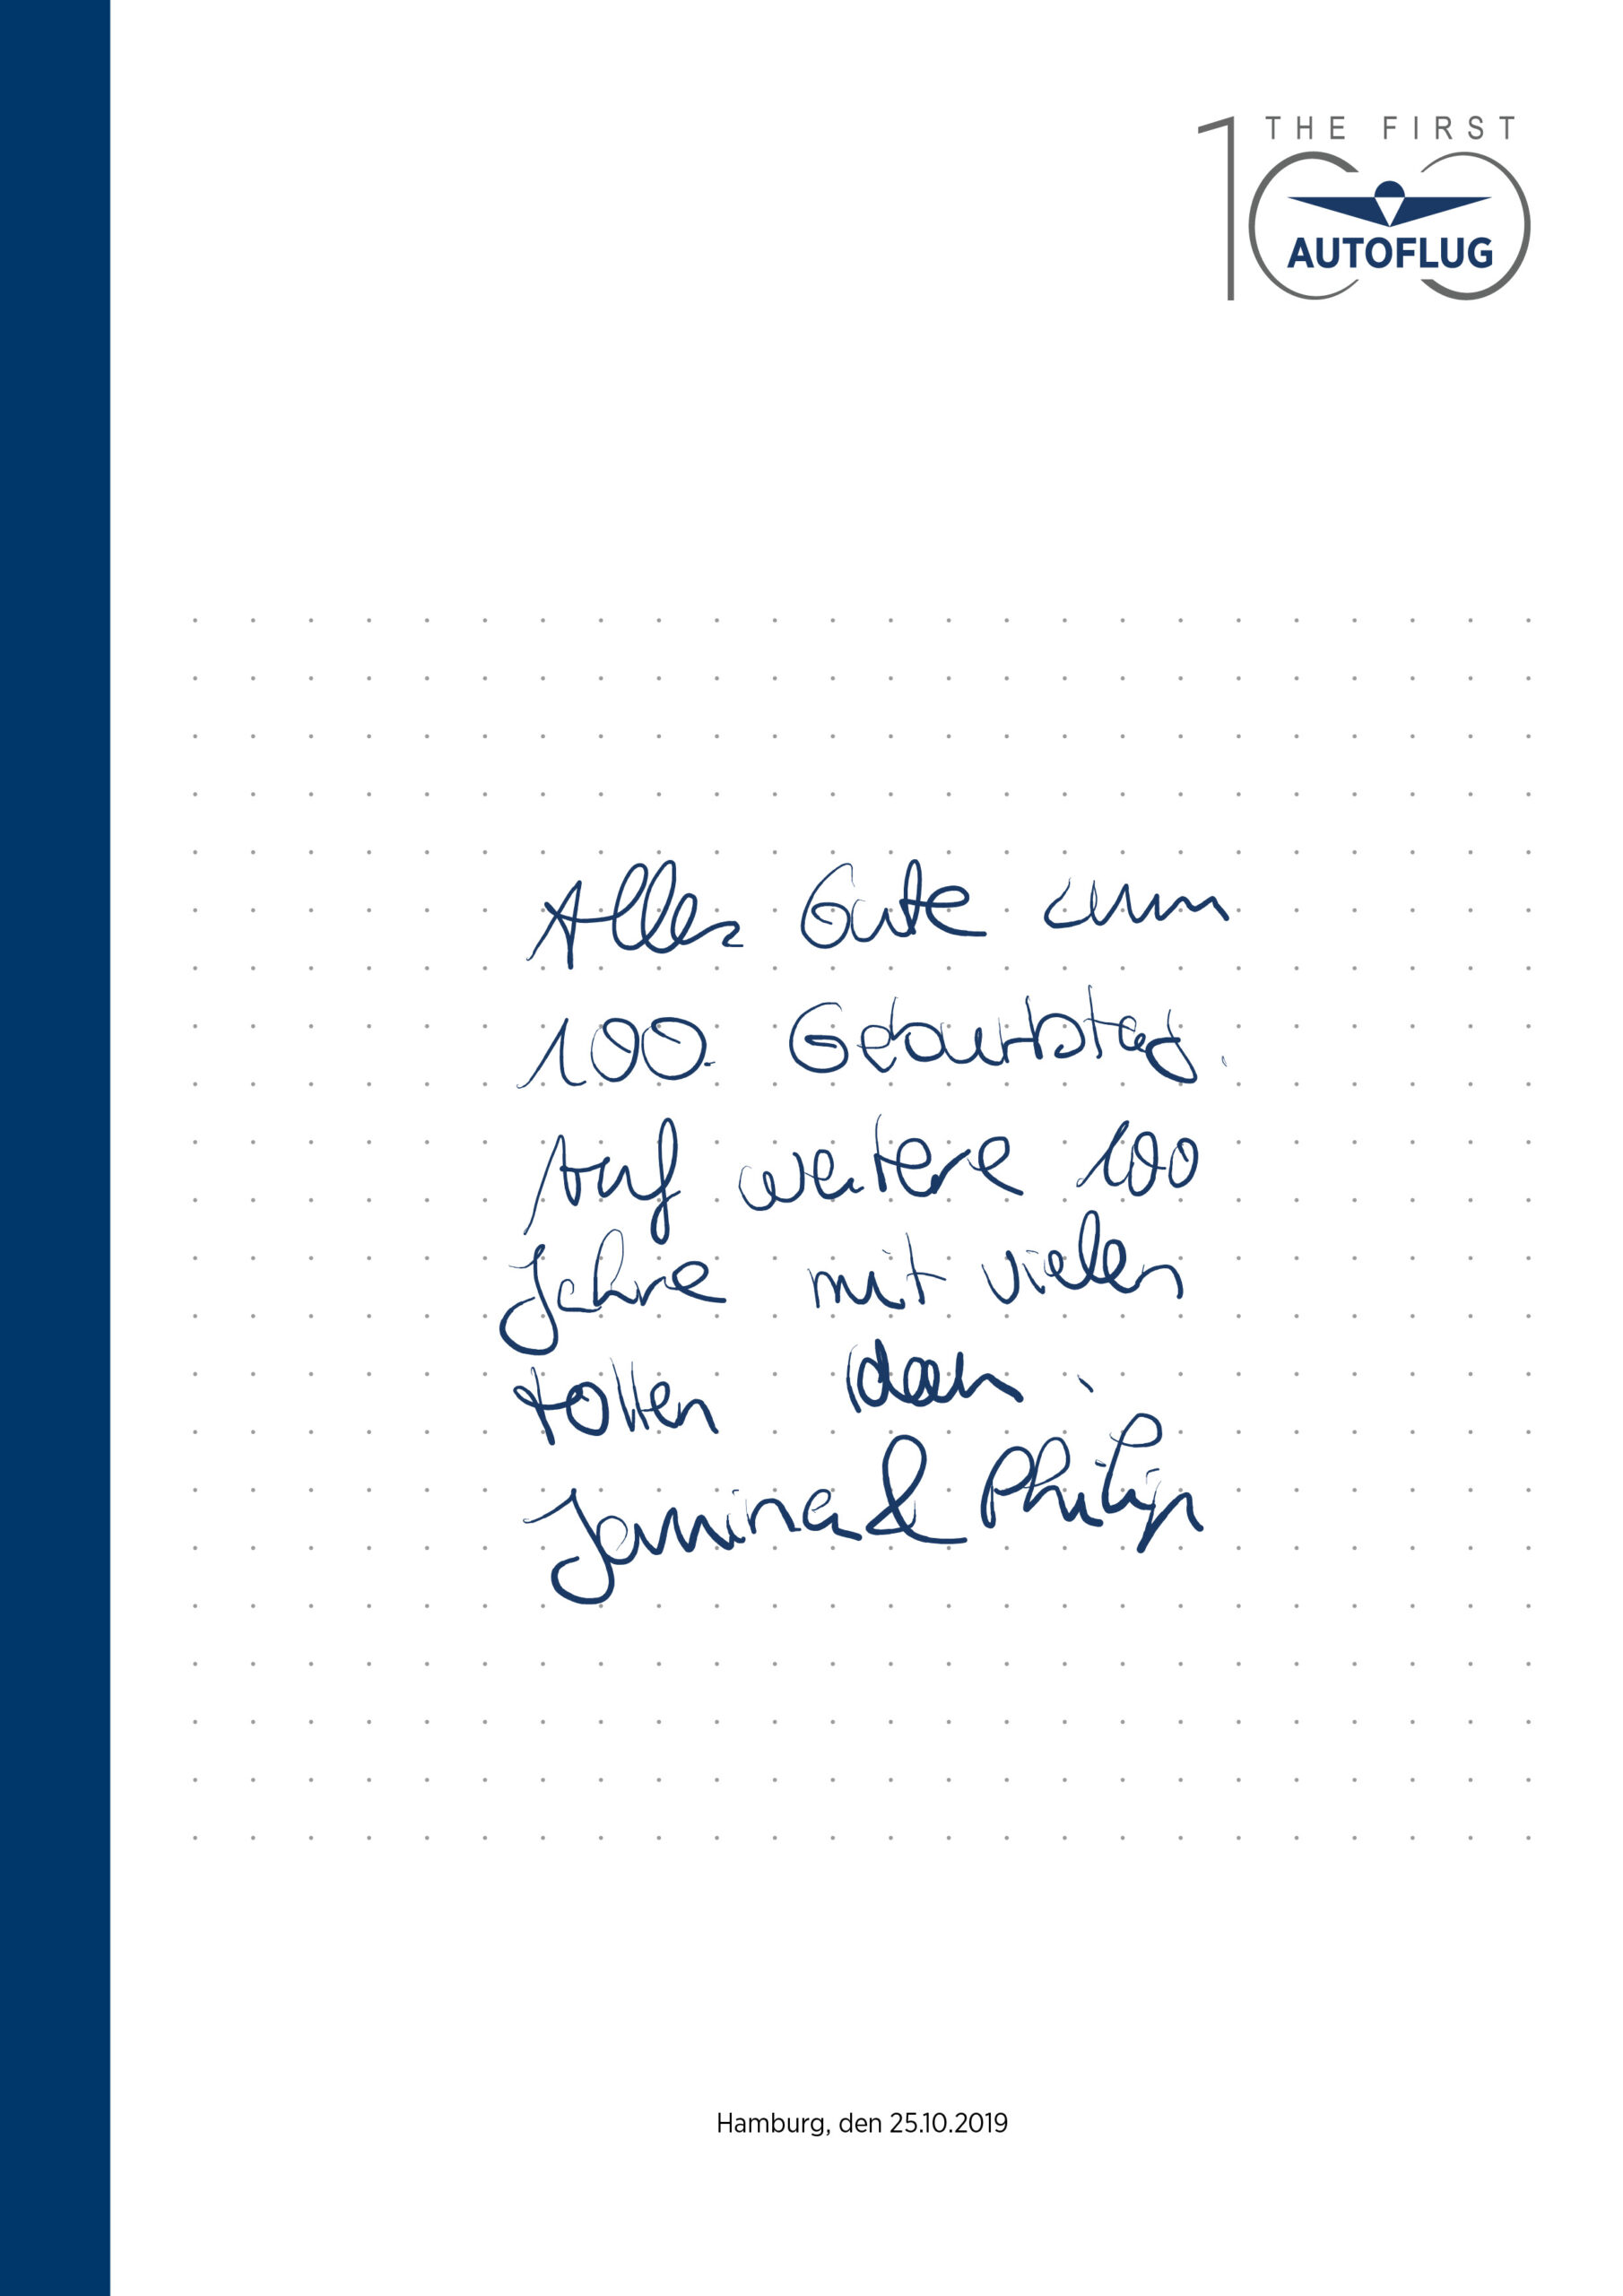 THE FIRST
100
AUTOFLUG
Alles Gute zum
100. Geburtstag.
Auf weitere 100
Jahre mit vielen
tollen Ideen.
Jannina & Philip
Hamburg, den 25.10.2019